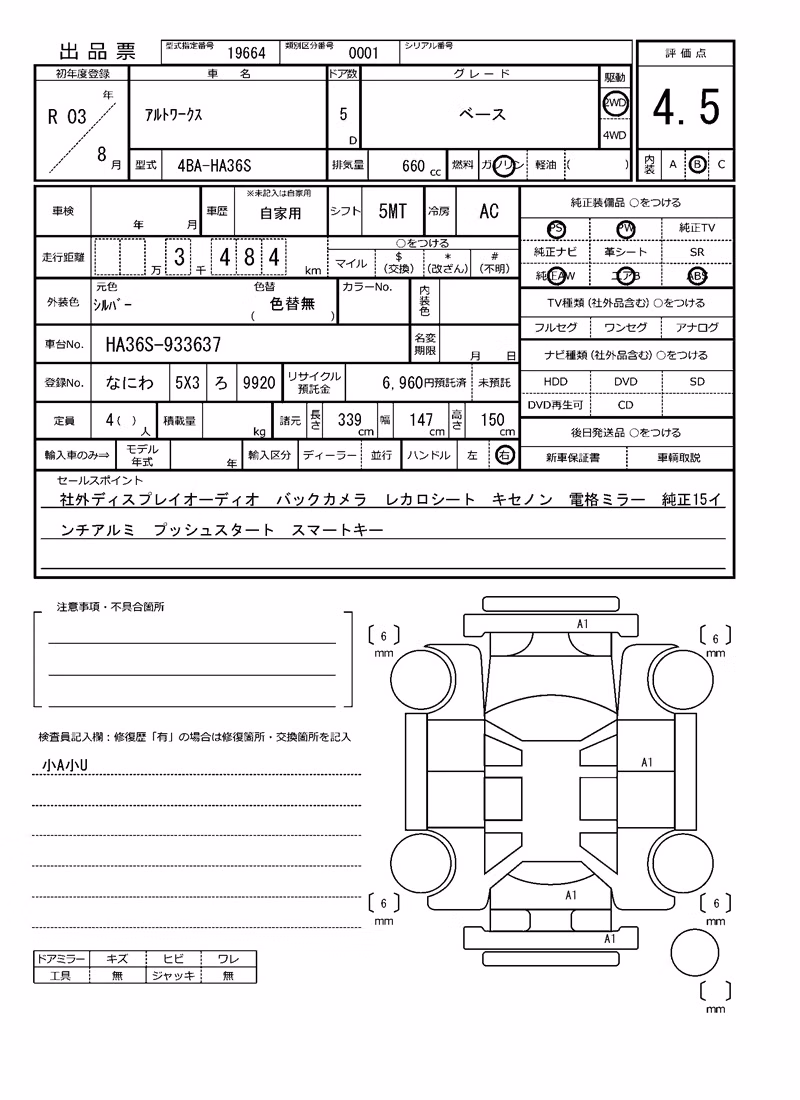 出品票 型式指定番号 19664 類別区分番号 0001 シリアル番号 評価点
初年度登録 車名 ドア数 グレード 駆動 4.5
R 03 年 8 月 アルトワークス 5 D ベース 2WD 4WD
型式 4BA-HA36S 排気量 660 cc 燃料 ガソリン 軽油 ( ) 内装 A B C
車検 年 月 車歴 ※未記入は自家用 自家用 シフト 5MT 冷房 AC 純正装備品 ○をつける
PS PW 純正TV
走行距離 万 3 千 4 8 4 km ○をつける マイル $ (交換) * (改ざん) # (不明) 純正ナビ 革シート SR
純正AW エアB ABS
外装色 元色 シルバー 色替 ( 色替無 ) カラーNo. 内装色 TV種類 (社外品含む) ○をつける
フルセグ ワンセグ アナログ
車台No. HA36S-933637 名変期限 月 日 ナビ種類 (社外品含む) ○をつける
登録No. なにわ 5X3 ろ 9920 リサイクル預託金 6,960円預託済 未預託 HDD DVD SD
DVD再生可 CD
定員 4 ( ) 人 積載量 kg 諸元 長さ 339 cm 幅 147 cm 高さ 150 cm 後日発送品 ○をつける
輸入車のみ⇒ モデル年式 年 輸入区分 ディーラー 並行 ハンドル 左 右 新車保証書 車輌取説
セールスポイント
社外ディスプレイオーディオ バックカメラ レカロシート キセノン 電格ミラー 純正15イ
ンチアルミ プッシュスタート スマートキー
注意事項・不具合箇所
検査員記入欄：修復歴「有」の場合は修復箇所・交換箇所を記入
小A小U
ドアミラー キズ ヒビ ワレ
工具 無 ジャッキ 無
A1
6 mm
6 mm
A1
A1
6 mm
6 mm
A1
mm